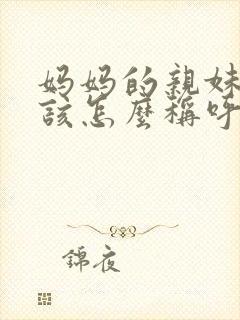 妈妈的親妹
該怎麼稱呼
錦夜